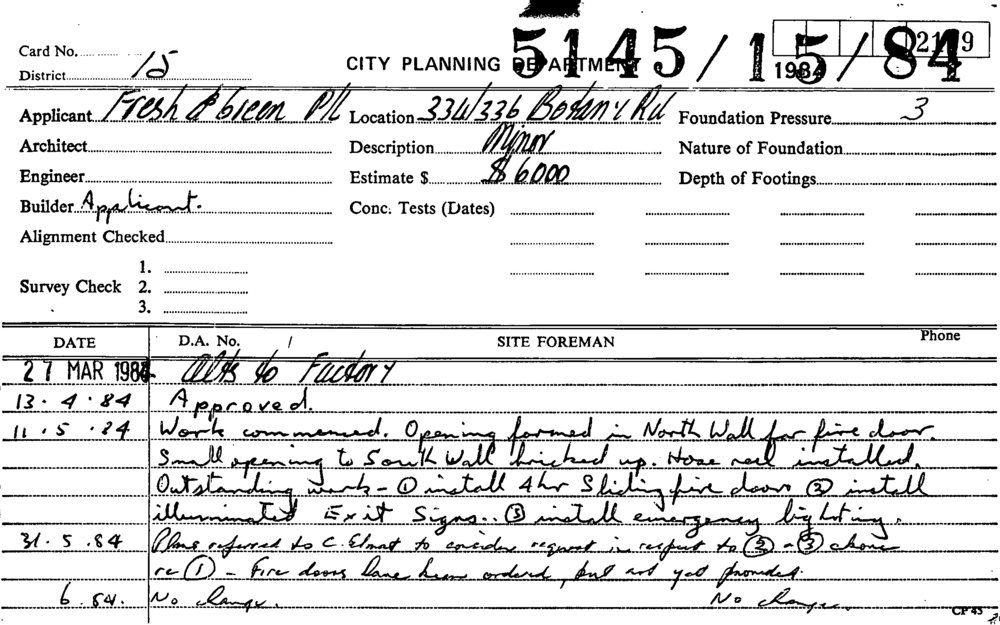 5145/15/84
Card No.
2119
1984
District 15
CITY PLANNING DEPARTMENT
Applicant Fresh & Green P/L Location 334/336 Botany Rd Foundation Pressure 3
Architect Description Minor Nature of Foundation
Engineer Estimate $ $6000 Depth of Footings
Builder Applicant. Conc. Tests (Dates)
Alignment Checked
1.
Survey Check 2.
3.
DATE D.A. No. / SITE FOREMAN Phone
27 MAR 1984 Alts to Factory
13.4.84 Approved.
11.5.84 Work commenced. Opening formed in North Wall for fire door.
Small opening to South Wall bricked up. Hose reel installed.
Outstanding work - ① install 4hr Sliding fire doors ② install
illuminated Exit Signs.. ③ install emergency lighting.
31.5.84 Plans referred to C. to consider request in respect to ② - ③ above
re ① - Fire doors have been ordered, but not yet provided.
6.84. No change. No change.
CP 45